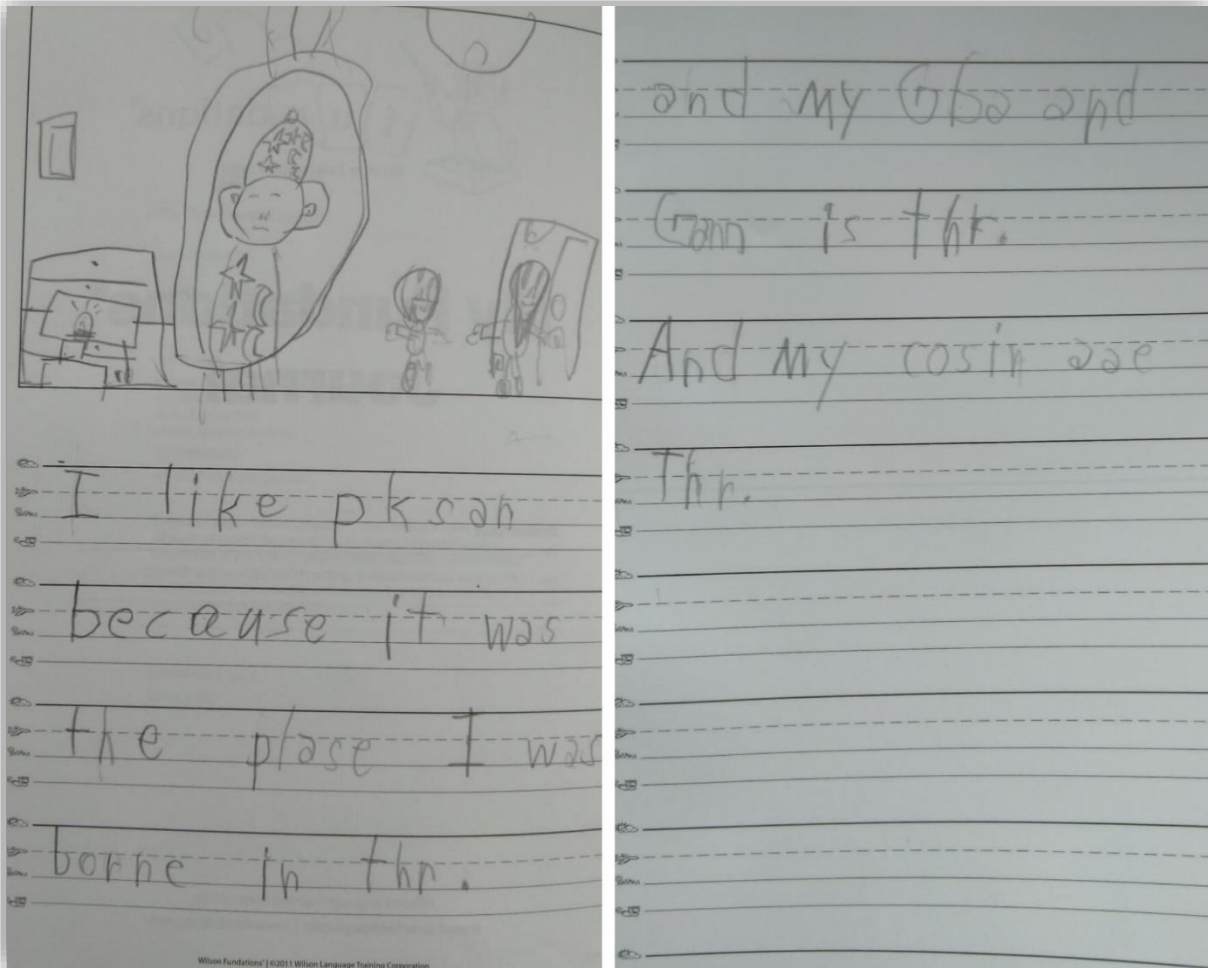 I like pksan
because it was
the plase I was
borne in thr.
Wilson Fundations® | ©2011 Wilson Language Training Corporation
and my Gfaa and
Gann is thr.
And my cosin aae
Thr.